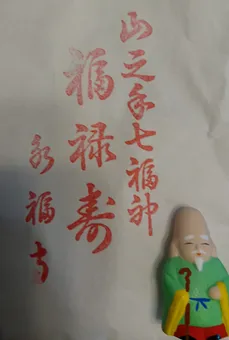 山之手七福神
福禄寿
永福寺